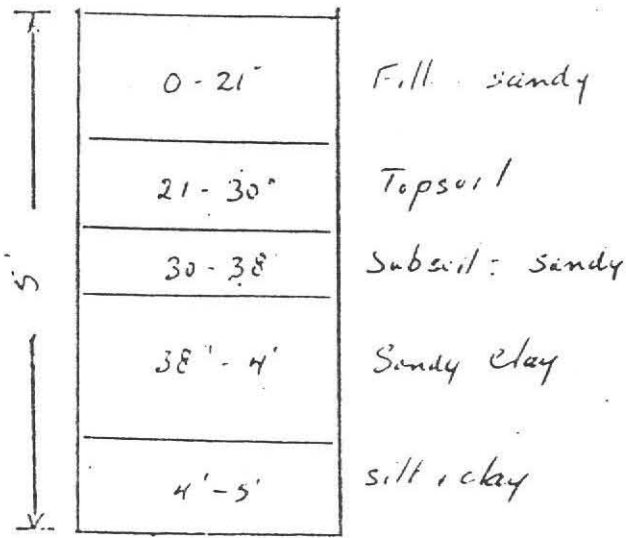 0 - 21" Fill sandy
21 - 30" Topsoil
30 - 38" Subsoil : sandy
5'
38" - 4' Sandy clay
4' - 5' silt + clay